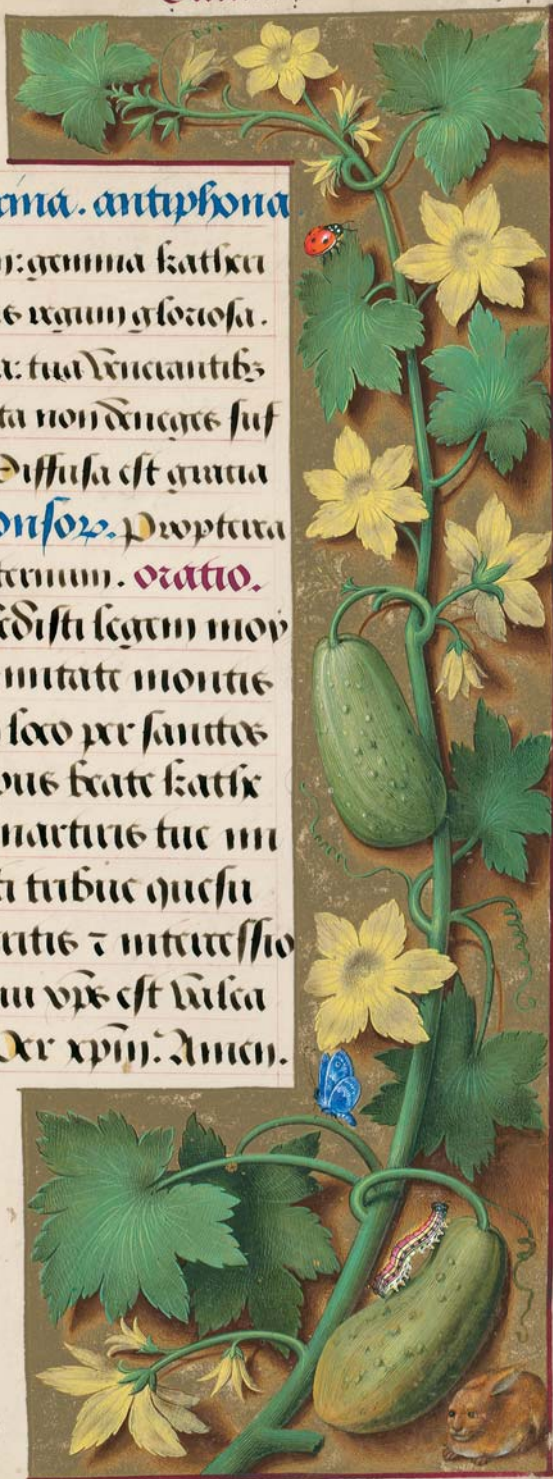 rina. antiphona
n: gemma katheri
s regum gloriosa.
a: tua venerantibz
ta non deneges suf
Diffusa est gratia
onsor. Propterea
ternum. oratio.
edisti legem moy
mitate montis
loco per sanctos
pus beate kathe
martiris tue mi
ti tribue quesu
ritis ⁊ intercessio
ui xp̄s est valea
Per xp̄m. Amen.